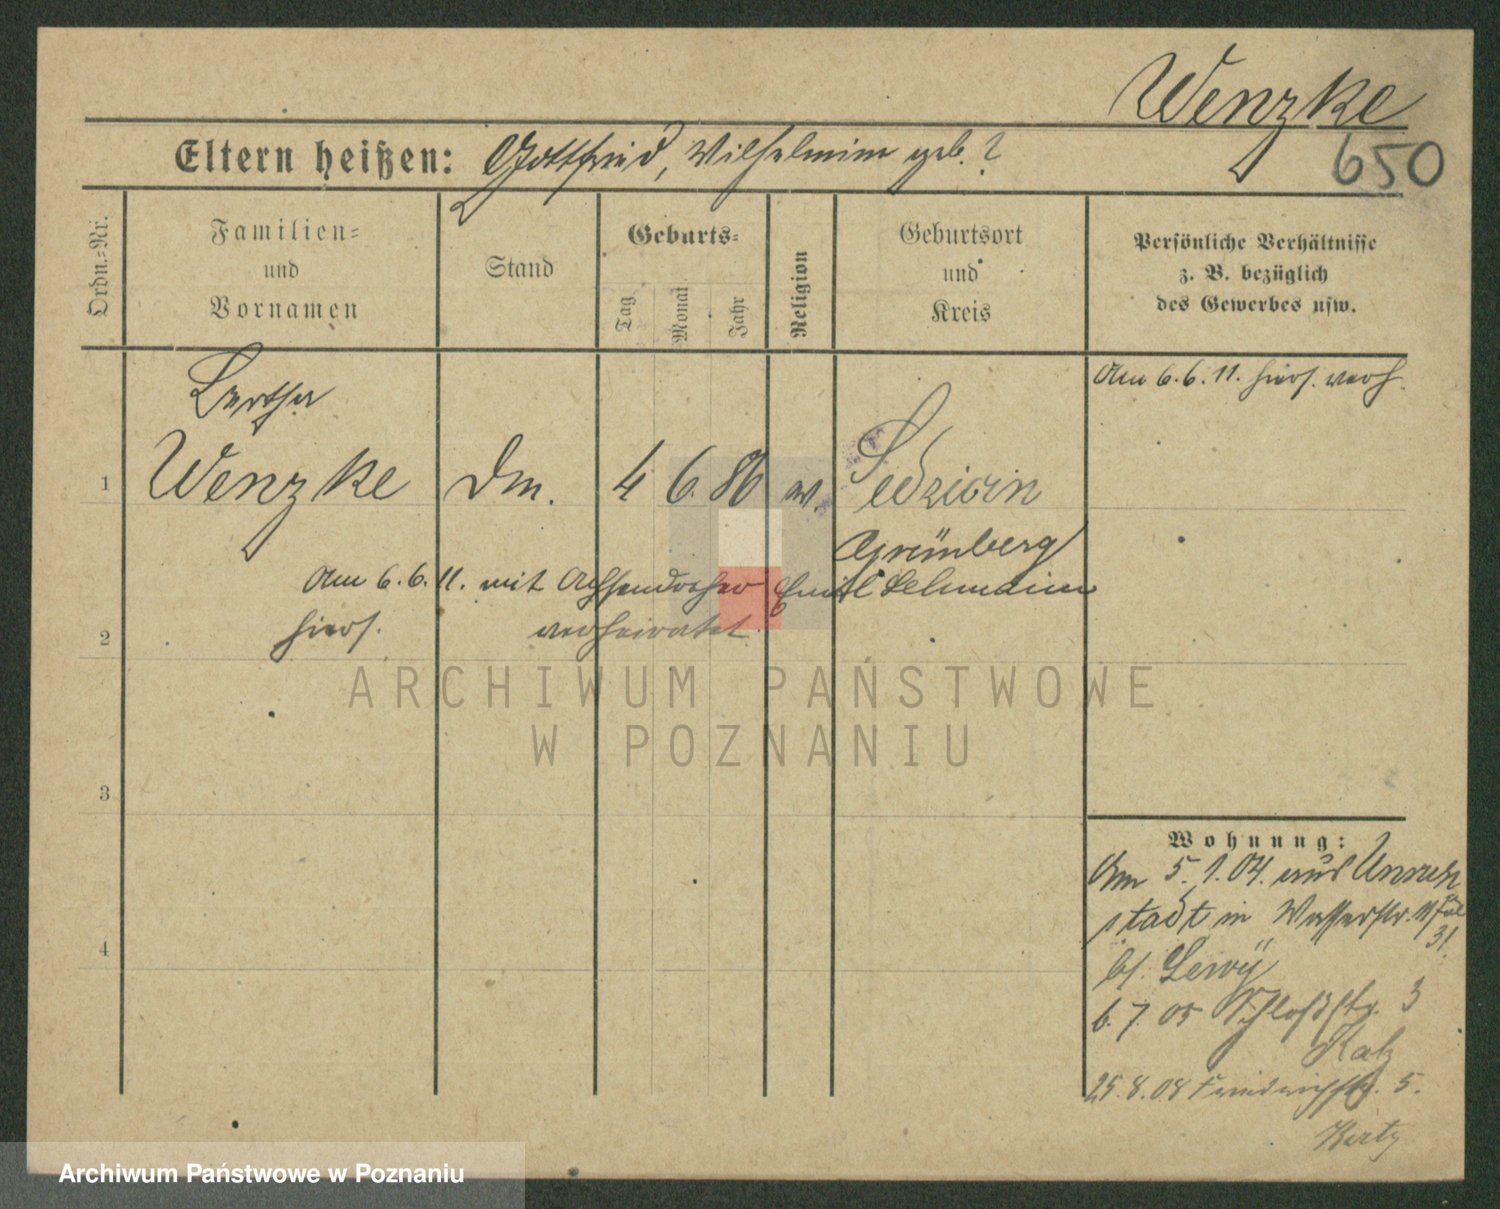 Wenzke
650
Eltern heißen: Gottfried, Wilhelmine geb. ?
Ordn.-Nr.
Familien-
und
Vornamen
Stand
Geburts-
Tag
Monat
Jahr
Religion
Geburtsort
und
Kreis
Persönliche Verhältnisse
z. B. bezüglich
des Gewerbes usw.
Am 6.6.11. hiers. verh.
Bertha
1 Wenzke Dm. 4 6. 86 w.
Grünberg
Am 6.6.11. mit Emil Lehmann
2 hiers. verheiratet.
ARCHIWUM PAŃSTWOWE
W POZNANIU
3
Wohnung:
Am 5.1.04. aus Unruh
stadt in Wasserstr. 31.
4
bf. Lewy
6.7.05 Schloßstr. 3
Katz
25.8.08 Friedrichstr. 5.
Archiwum Państwowe w Poznaniu